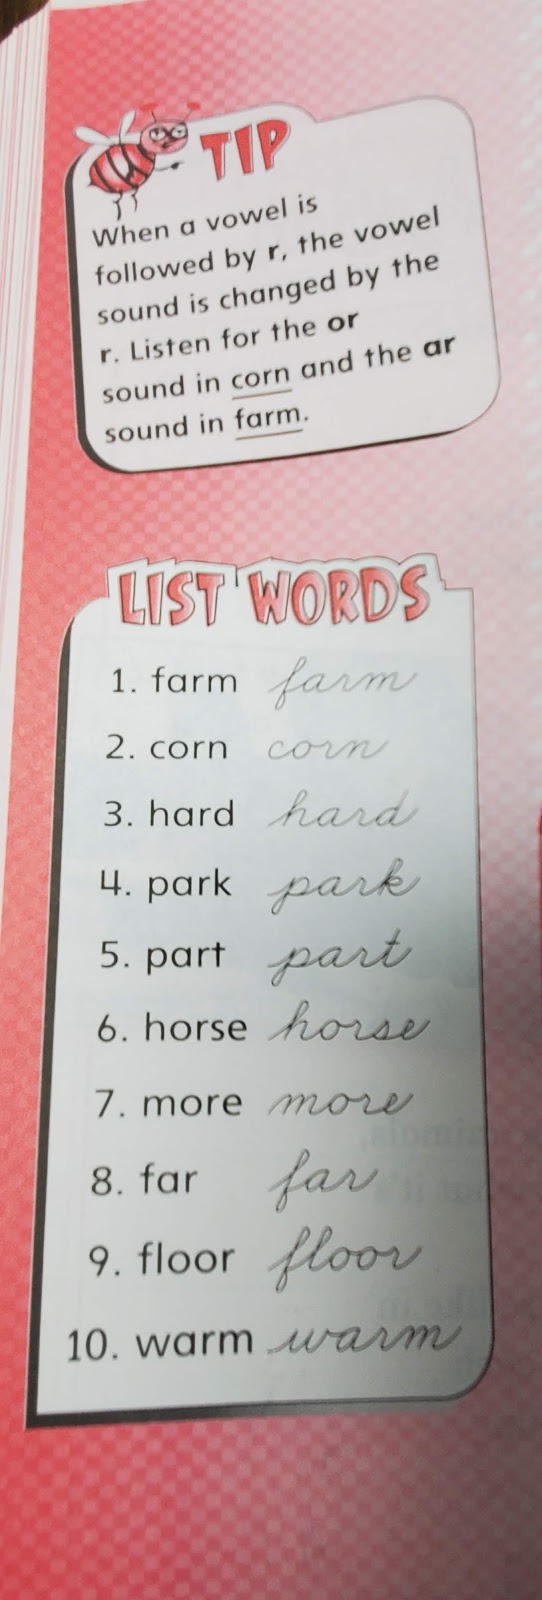 TIP
When a vowel is
followed by r, the vowel
sound is changed by the
r. Listen for the or
sound in corn and the ar
sound in farm.
LIST WORDS
1. farm farm
2. corn corn
3. hard hard
4. park park
5. part part
6. horse horse
7. more more
8. far far
9. floor floor
10. warm warm